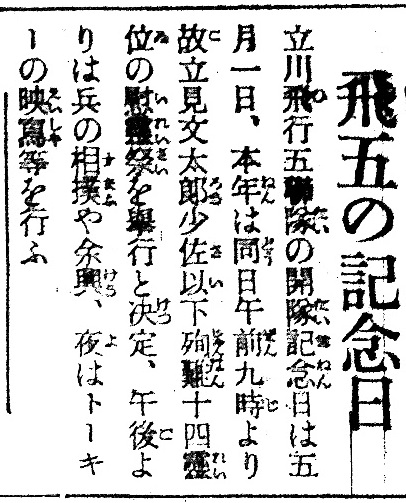 飛五の記念日
立川飛行五聯隊の開隊記念日は五
月一日、本年は同日午前九時より
故立見文太郎少佐以下殉難十四靈
位の慰靈祭を擧行と決定、午後よ
りは兵の相撲や余興、夜はトーキ
ーの映寫等を行ふ